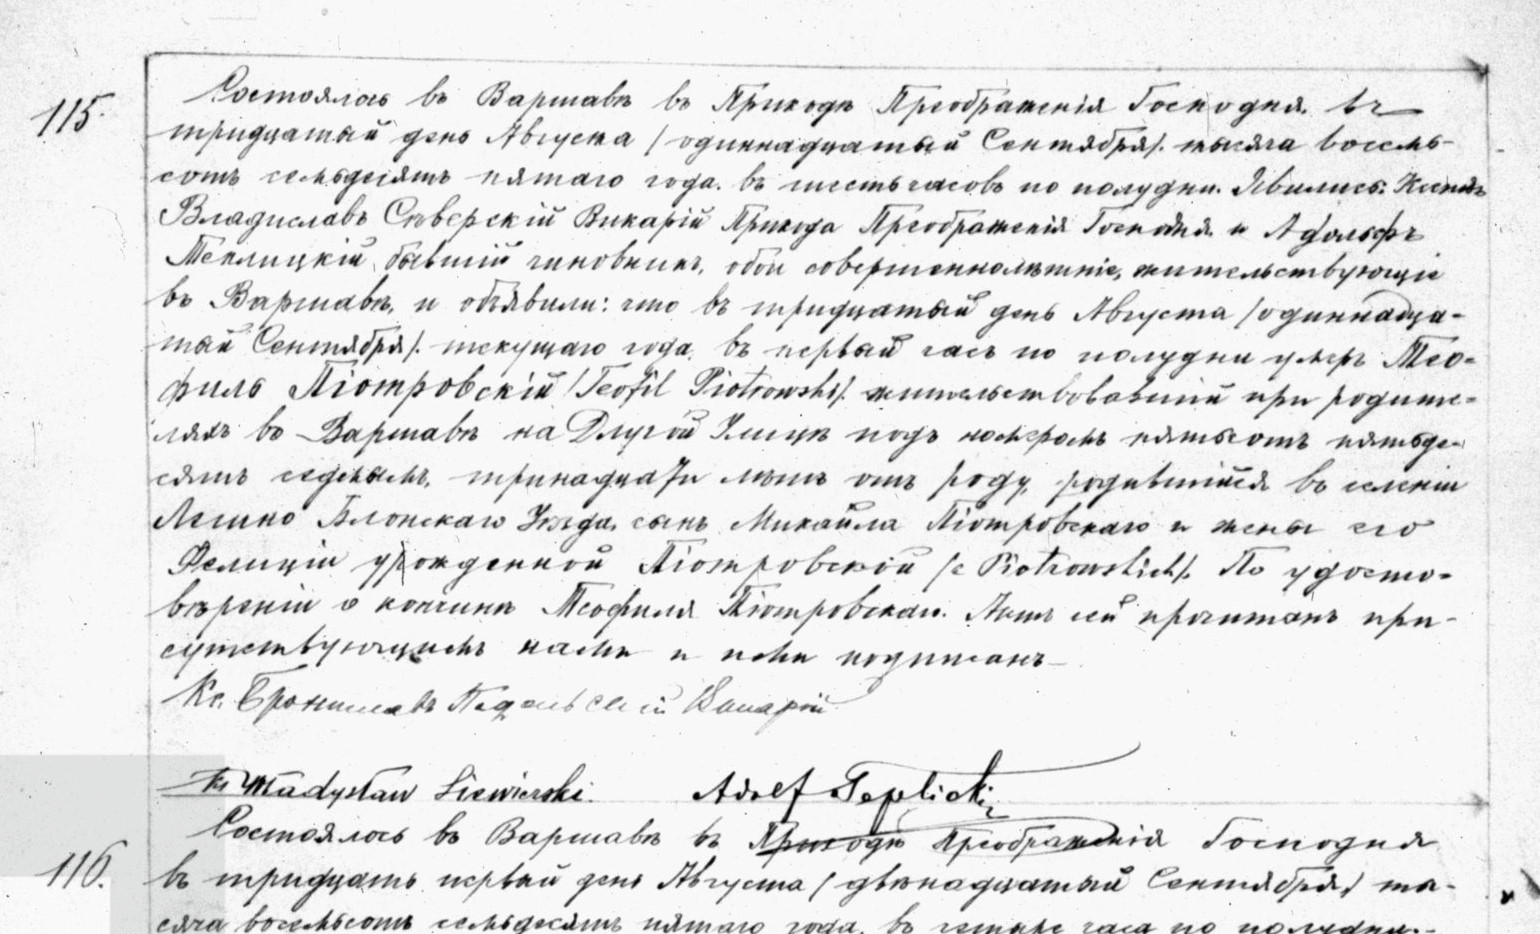 115.
Состоялось въ Варшавѣ въ Приходѣ Преображенія Господня. въ
тридцатый день Августа /одиннадцатый Сентября/. тысяча восемь-
сотъ семьдесятъ пятаго года. въ шесть часовъ по полудни. Явились: Ксендзъ
Владиславъ Сѣверскій Викарій Прихода Преображенія Господня и Адольфъ
Теплицкій, бывшій чиновникъ, обои совершеннолѣтніе, жительствующіе
въ Варшавѣ, и объявили: что въ тридцатый день Августа /одиннадца-
тый Сентября/. текущаго года, въ первый часъ по полудни умеръ Тео-
филь Піотровскій /Teofil Piotrowski/. жительствовавшій при родите-
ляхъ въ Варшавѣ на Длугой Улицѣ подъ номеромъ пятьсотъ пятьде-
сятъ седьмымъ, тринадцати лѣтъ отъ роду, родившійся въ селеніи
Блонскаго Уѣзда, сынъ Михайла Піотровскаго и жены его
Фелиціи урожденной Піотровской /z Piotrowskich/. По удосто-
вѣреніи о кончинѣ Теофиля Піотровскаго. Актъ сей прочитанъ при-
сутствующимъ нами и ими подписанъ
Кс. Брониславъ Викарій
Ks Władysław Siewierski. Adolf Teplicki
116.
Состоялось въ Варшавѣ въ Приходѣ Преображенія Господня
въ тридцать первый день Августа /двѣнадцатый Сентября/ ты-
сяча восемьсотъ семьдесятъ пятаго года, въ четыре часа по полудни.